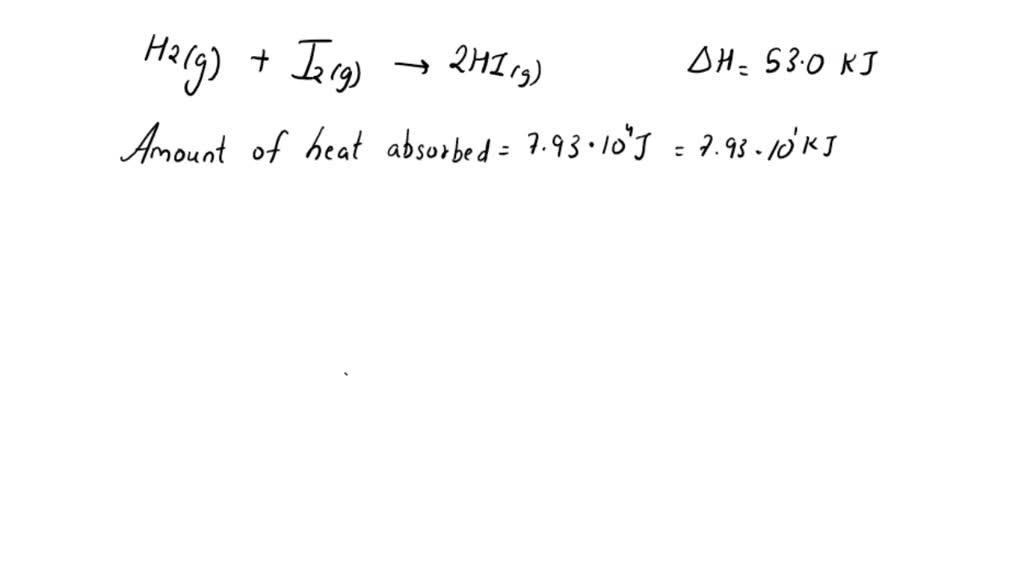 H2(g) + I2(g) → 2HI(g) ΔH = 53.0 KJ
Amount of heat absorbed = 7.93 · 10⁴ J = 7.93 · 10¹ KJ